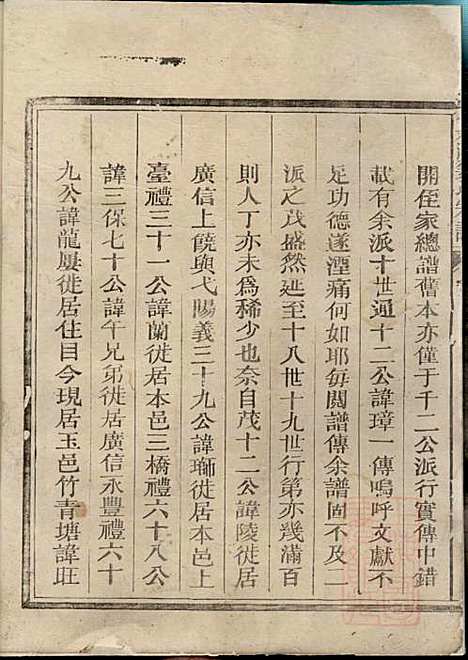 開侄家總譜舊本亦僅于千二公派行實傳中錯
載有余派十世通十二公諱璋一傳嗚呼文獻不
足功德遂湮痛何如耶每閱譜傳余譜固不及二
派之茂盛然延至十八世十九世行第亦幾滿百
則人丁亦未為稀少也奈自茂十二公諱陵徙居
廣信上饒與弋陽義三十九公諱瑡徙居本邑上
臺禮三十一公諱蘭徙居本邑三橋禮六十八公
諱三保七十公諱午兄弟徙居廣信永豐禮六十
九公諱龍慶徙居住目今現居玉邑竹青塘諱旺